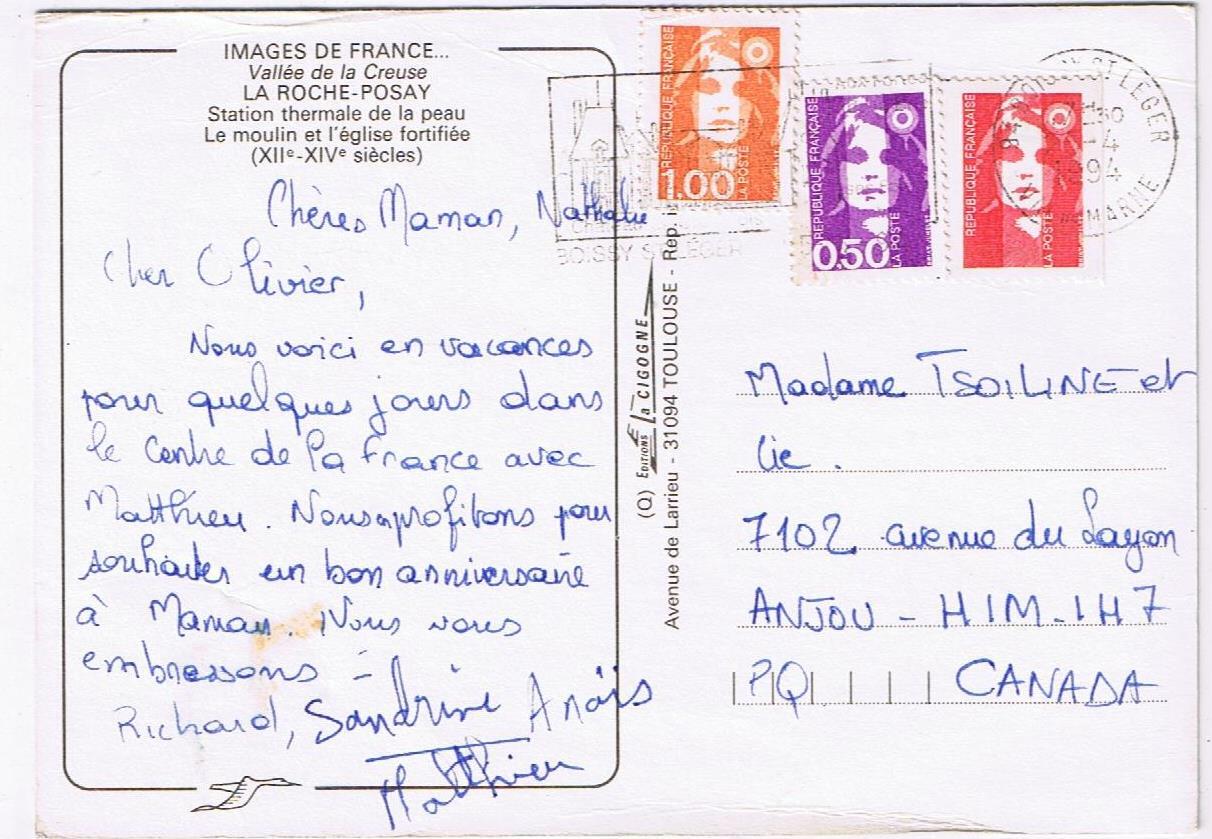 IMAGES DE FRANCE...
Vallée de la Creuse
LA ROCHE-POSAY
Station thermale de la peau
Le moulin et l'église fortifiée
(XIIe-XIVe siècles)
Chères Maman, Nathalie
Cher Olivier,
Nous voici en vacances
pour quelques jours dans
le Centre de la France avec
Matthieu. Nous profitons pour
souhaiter un bon anniversaire
à Maman. Nous vous
embrassons -
Richard, Sandrine Anaïs
Matthieu
(Q) EDITIONS la CIGOGNE
Avenue de Larrieu - 31094 TOULOUSE - Rep. i
REPUBLIQUE FRANÇAISE
1.00
LA POSTE
REPUBLIQUE FRANÇAISE
0,50
LA POSTE
REPUBLIQUE FRANÇAISE
LA POSTE
BOISSY ST LEGER
ST LEGER
1994
MARNE
Madame TSOILINE et
Cie.
7102 avenue du Layon
ANJOU - H1M-1H7
PQ CANADA